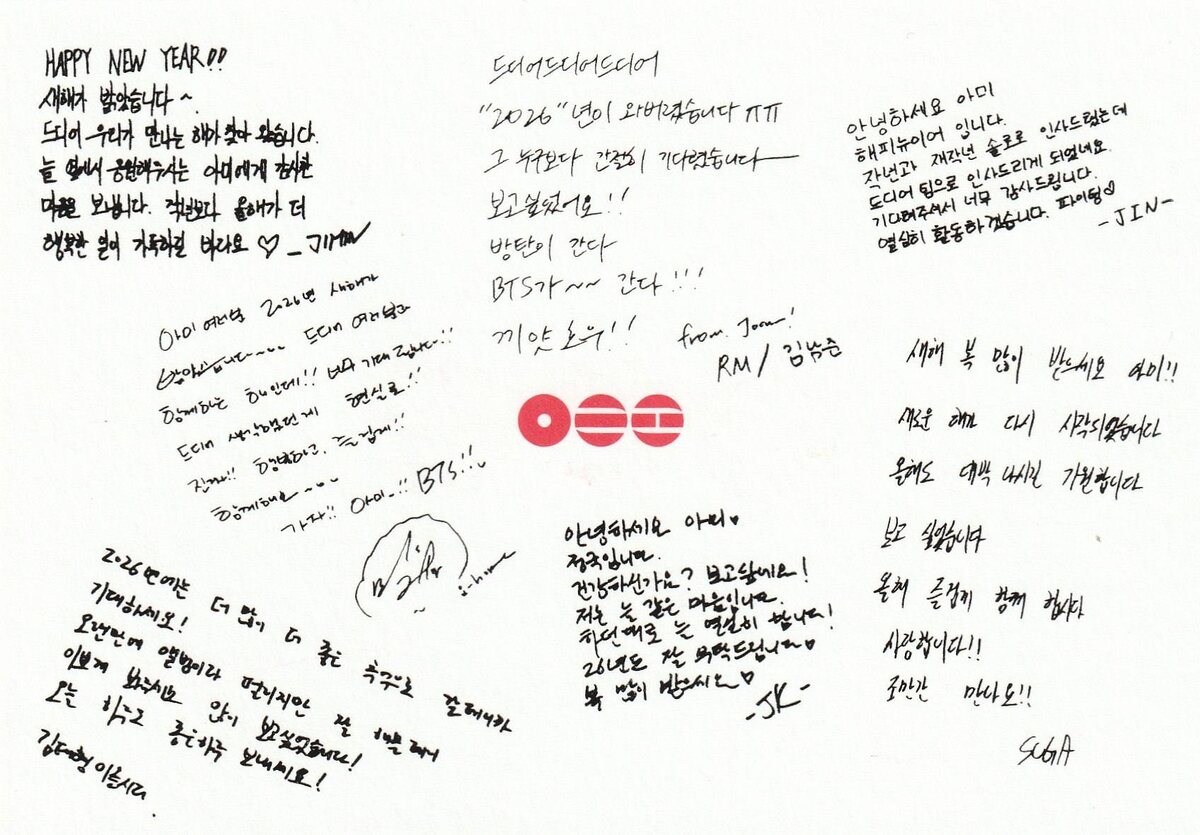 HAPPY NEW YEAR!!
새해가 밝았습니다~
드디어 우리가 만나는 해가 찾아 왔습니다.
늘 옆에서 응원해주시는 아미에게 감사한
마음을 보냅니다. 작년보다 올해가 더
행복한 일이 가득하길 바라요 ♡ - JIMIN
드디어드디어드디어
"2026"년이 와버렸습니다 ㅠㅠ
그 누구보다 간절히 기다렸습니다
보고싶었어요!!
방탄이 간다
BTS가~~ 간다!!!
끼얏호우!!
from. Joon!
RM / 김남준
안녕하세요 아미
해피뉴이어 입니다.
작년과 재작년 솔로로 인사드렸는데
드디어 팀으로 인사드리게 되었네요.
기다려주셔서 너무 감사드립니다.
열심히 활동하겠습니다. 파이팅♡
- JIN -
아미 여러분 2026년 새해가
밝았습니다~~~ 드디어 여러분과
함께하는 해인데!! 너무 기대됩니다!!
드디어 생각했던게 현실로!!
진짜!! 행복하고, 즐겁게!!
함께해요~~~
가자!! 아미~!! BTS!!
j-hope
새해 복 많이 받으세요 아미!!
새로운 해가 다시 시작되었습니다
올해도 대박 나시길 기원합니다
보고 싶었습니다
올해 즐겁게 함께 합시다
사랑합니다!!
조만간 만나요!!
SUGA
안녕하세요 아미♥
정국입니다.
건강하신가요? 보고싶네요!
저는 늘 같은 마음입니다.
하던대로 늘 열심히 합니다!
26년도 잘 부탁드립니다♥
복 많이 받으세요♥
- JK -
2026년에는 더 많이 더 좋은 추억으로 갈테니까
기대하세요!
오랜만에 앨범이라 떨리지만 잘 해볼테니
이쁘게 봐주시요 많이 보고싶었습니다!
오늘 하루도 좋은하루 보내세요!
김태형이올시다.